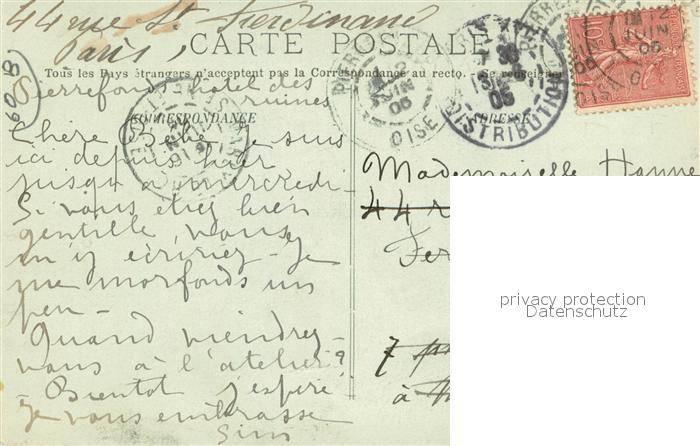 44 rue St Ferdinand
Paris,
CARTE POSTALE
Tous les Pays étrangers n'acceptent pas la Correspondance au recto. - Se renseigner
Pierrefonds hotel des
ruines
CORRESPONDANCE
ADRESSE
Chère Bébé je suis
ici depuis hier
jusqu'à mercredi -
Si vous étiez bien
gentille vous
m'y écririez - Je
me morfonds un
peu -
Quand viendrez-
vous à l'atelier?
- Bientot j'espère
je vous embrasse
Mademoiselle Hanne
44 r
Fer
7
à
PIERRE
OISE
2
JUIN
06
DISTRIBUTION
10
privacy protection
Datenschutz